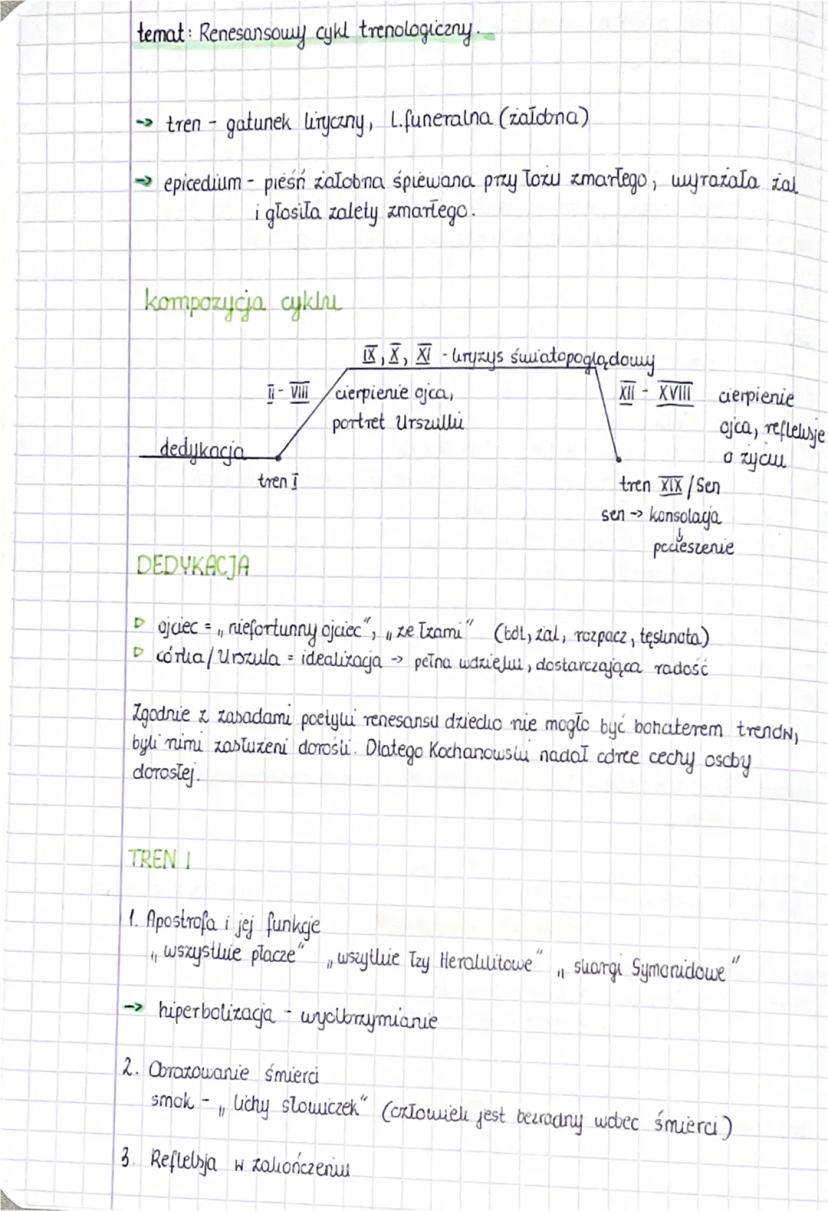 temat: Renesansowy cykl trenologiczny.
→ tren - gatunek liryczny, L.funeralna (żałobna)
→ epicedium - pieśń żałobna śpiewana przy łożu zmarłego, wyrażała żal
i głosiła zalety zmarłego.
kompozycja cyklu
IX, X, XI - kryzys światopoglądowy
II - VIII cierpienie ojca,
portret Urszulki
XII - XVIII cierpienie
ojca, refleksje
o życiu
dedykacja
tren I
tren XIX / Sen
sen → konsolacja
↓
pocieszenie
DEDYKACJA
▷ ojciec = „niefortunny ojciec", „ze łzami" (ból, żal, rozpacz, tęsknota)
▷ córka/Urszula = idealizacja → pełna wdzięku, dostarczająca radość
Zgodnie z zasadami poetyki renesansu dziecko nie mogło być bohaterem trenów,
byli nimi zasłużeni dorośli. Dlatego Kochanowski nadał córce cechy osoby
dorosłej.
TREN I
1. Apostrofa i jej funkcje
„wszystkie płacze" „wszytkie łzy Heraklitowe" „skargi Symonidowe"
→ hiperbolizacja - wyolbrzymianie
2. Obrazowanie śmierci
smok - „lichy słowiczek" (człowiek jest bezradny wobec śmierci)
3. Refleksja w zakończeniu